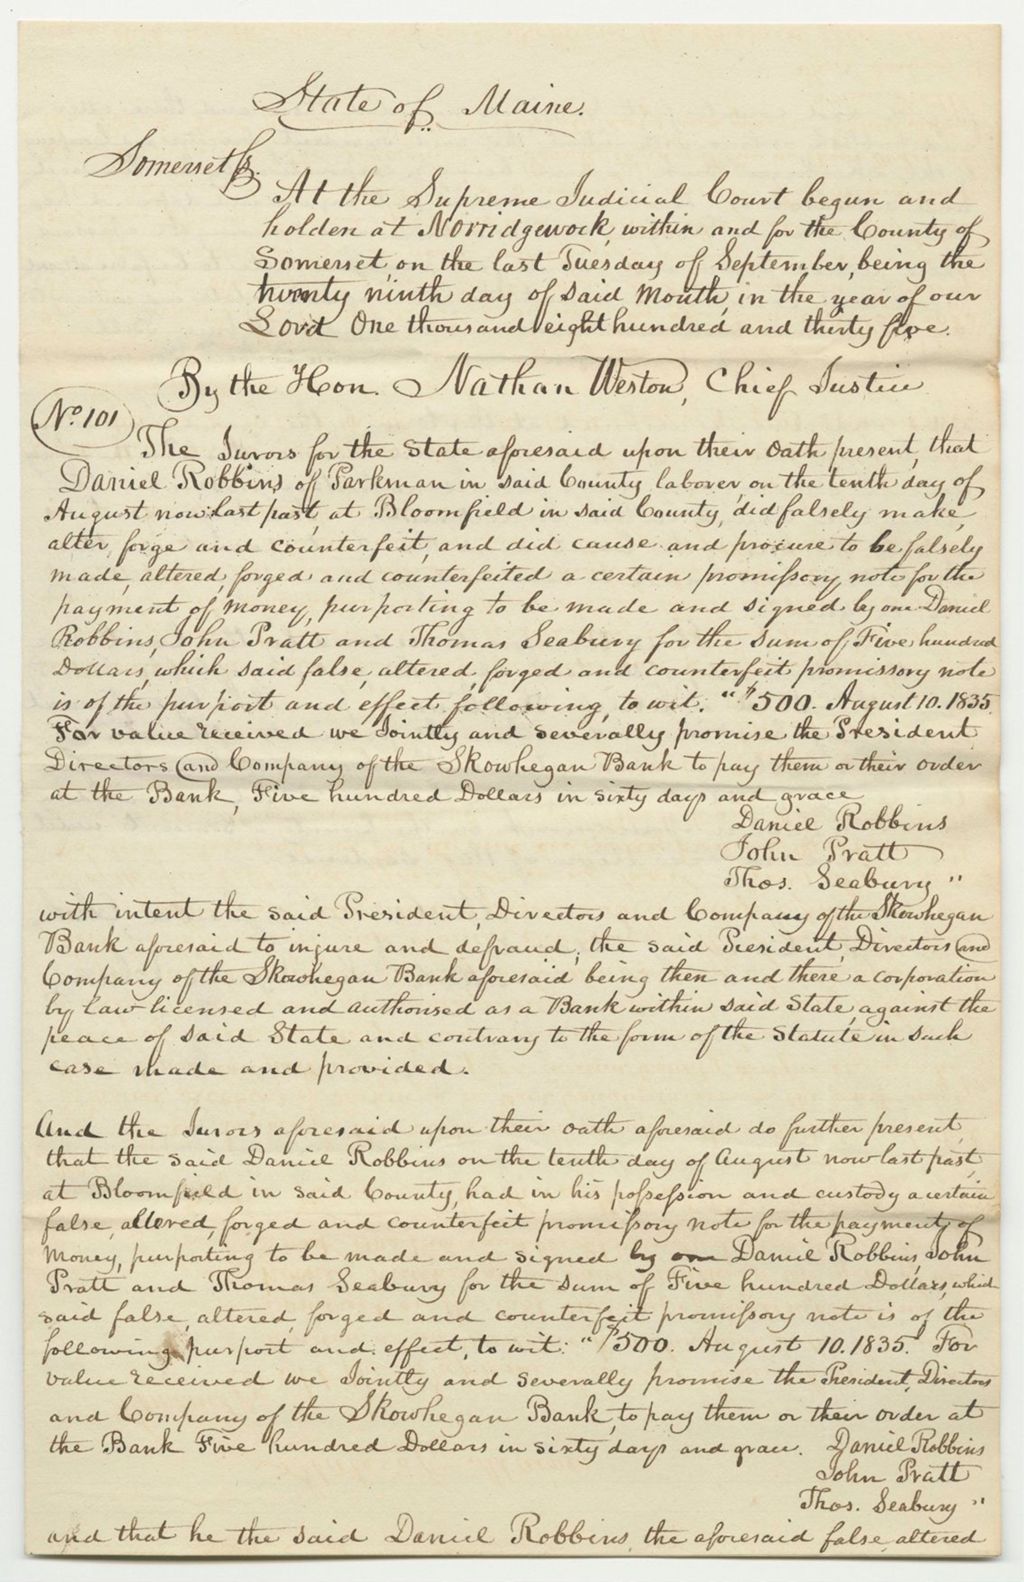 State of Maine.
Somerset ss.
At the Supreme Judicial Court begun and
holden at Norridgewock, within and for the County of
Somerset, on the last Tuesday of September, being the
twenty ninth day of said Month, in the year of our
Lord One thousand eight hundred and thirty five.
By the Hon. Nathan Weston, Chief Justice
No. 101
The Jurors for the State aforesaid upon their oath present, that
Daniel Robbins of Parkman in said County, laborer, on the tenth day of
August now last past, at Bloomfield in said County, did falsely make,
alter, forge and counterfeit, and did cause and procure to be falsely
made, altered, forged and counterfeited a certain promissory note for the
payment of money, purporting to be made and signed by one Daniel
Robbins, John Pratt and Thomas Seabury for the sum of Five hundred
Dollars, which said false, altered, forged and counterfeit promissory note
is of the purport and effect following, to wit. "$500. August 10. 1835.
For value received we Jointly and severally promise the President
Directors and Company of the Skowhegan Bank to pay them or their order
at the Bank, Five hundred Dollars in sixty days and grace
Daniel Robbins
John Pratt
Thos. Seabury "
with intent the said President, Directors and Company of the Skowhegan
Bank aforesaid to injure and defraud, the said President, Directors and
Company of the Skowhegan Bank aforesaid being then and there a corporation
by Law licensed and authorised as a Bank within said State, against the
peace of said State and contrary to the form of the Statute in such
case made and provided.
And the Jurors aforesaid upon their oath aforesaid do further present,
that the said Daniel Robbins on the tenth day of August now last past,
at Bloomfield in said County, had in his possession and custody a certain
false, altered, forged and counterfeit promissory note for the payment of
Money, purporting to be made and signed by one Daniel Robbins, John
Pratt and Thomas Seabury for the sum of Five hundred Dollars, which
said false, altered, forged and counterfeit promissory note is of the
following purport and effect, to wit: "$500. August 10. 1835. For
value received we Jointly and severally promise the President, Directors
and Company of the Skowhegan Bank, to pay them or their order at
the Bank Five hundred Dollars in sixty days and grace. Daniel Robbins
John Pratt
Thos. Seabury "
and that he the said Daniel Robbins, the aforesaid false, altered